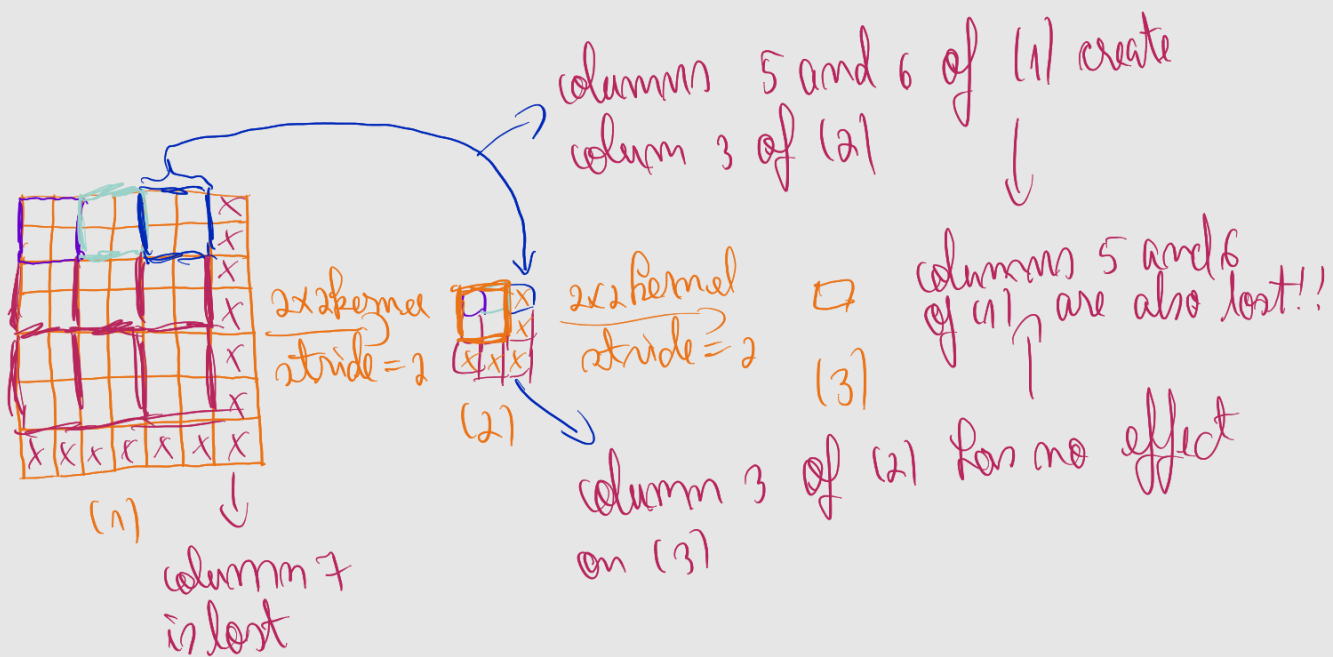 columns 5 and 6 of (1) create
colum 3 of (2)
columns 5 and 6
of (1) are also lost!!
X
X
X
X
X
X
X X X X X X X
(1)
column 7
is lost
2x2 kernel
stride=2
X
X
X X X
(2)
2x2 kernel
stride=2
(3)
column 3 of (2) has no effect
on (3)